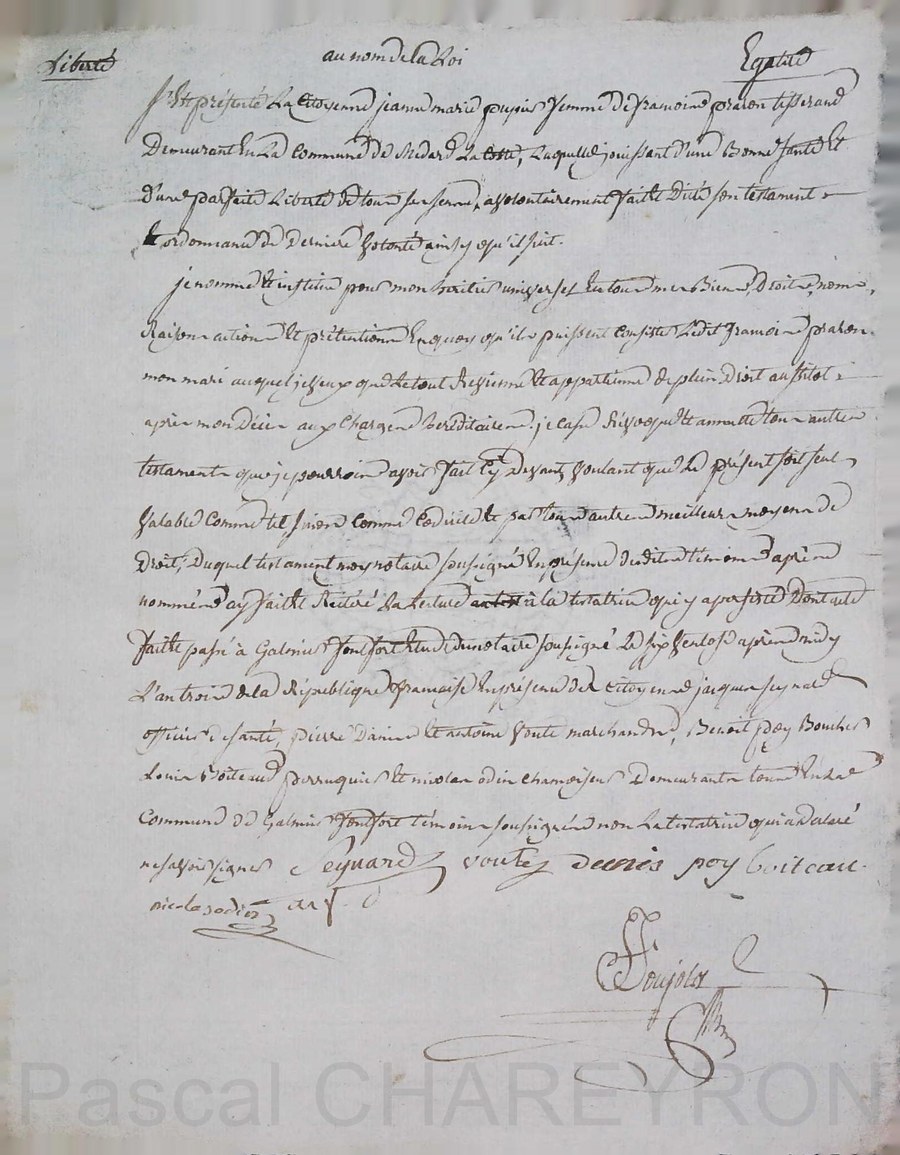 Liberté au nom de la Loi Egalité
S'est présenté La Citoyenne jeanne marie pupier femme de françois praron tisserand
Demeurant En La Commune de Médard La Coste, Laquelle jouissant d'une Bonne santé Et
d'une parfaite Liberté de tous ses sens, a volontairement fait et Dicté son testament
Et ordonnance de Derniere volonté ainsy qu'il suit.
je nomme Et institue pour mon héritier universel En tous mes Biens, Droits, noms,
Raisons actions Et prétentions En quoy qu'ils puissent Consister Ledit françois praron
mon mari auquel je veux que le tout Revienne Et appartienne de plein Droit aussitot
après mon Décès aux Charges héréditaires. je casse Révoque Et annulle tous autres
testaments que je pourrois avoir fait Cy Devant, voulant que Le présent soit seul
valable Comme tel sinon Comme Codicile Et par tous autres meilleurs moyens de
Droit, Duquel testament moy notaire soussigné En présence desdits témoins après
nommés ay fait et Réitéré La Lecture à la testatrice qui y a persisté Dont acte
fait et passé à Galmier fontfort Etude du notaire soussigné Le six ventose après midy
L'an trois de la République française En présence des Citoyens jacques seynard
officier de santé, pierre Denis Et antoine voute marchands, Benoit poy Boucher
Louis Boiteau perruquier Et nicolas odin chamoiseur Demeurants tous En La
Commune de Galmier fontfort témoins soussignés non La testatrice qui a déclaré
ne savoir signer Seynard voute denis poy boiteau
nicolas odin
Poujola